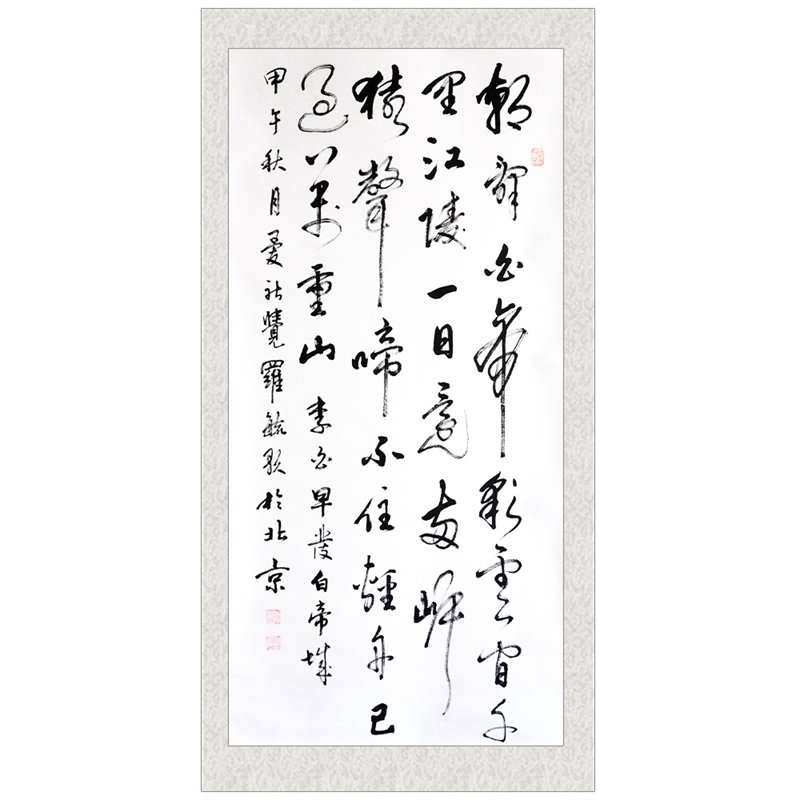 朝辭白帝彩雲間千
里江陵一日還兩岸
猿聲啼不住輕舟已
過萬重山 李白早發白帝城
甲午秋月愛新覺羅毓於北京